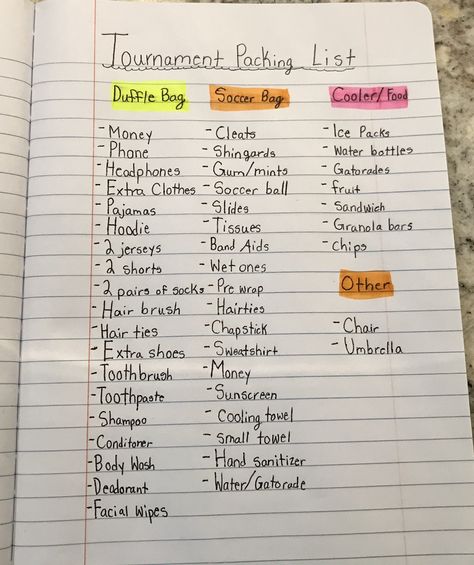 Tournament Packing List
Duffle Bag
- Money
- Phone
- Headphones
- Extra Clothes
- Pajamas
- Hoodie
- 2 jerseys
- 2 shorts
- 2 pairs of socks
- Hair brush
- Hair ties
- Extra shoes
- Toothbrush
- Toothpaste
- Shampoo
- Conditoner
- Body Wash
- Deodorant
- Facial Wipes
Soccer Bag
- Cleats
- Shingards
- Gum/mints
- Soccer ball
- Slides
- Tissues
- Band Aids
- Wet ones
- Pre wrap
- Hairties
- Chapstick
- Sweatshirt
- Money
- Sunscreen
- Cooling towel
- Small towel
- Hand sanitizer
- Water/Gatorade
Cooler/Food
- Ice Packs
- Water bottles
- Gatorades
- fruit
- Sandwich
- Granola bars
- chips
Other
- Chair
- Umbrella